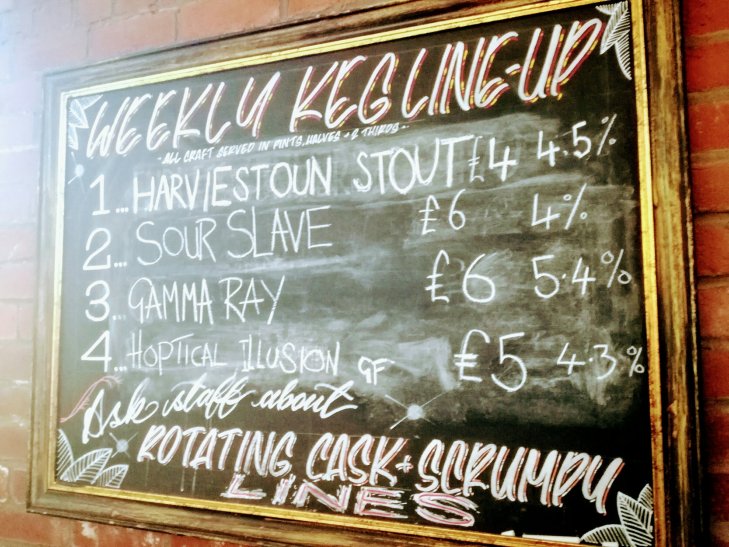 WEEKLY KEG LINE-UP
- ALL CRAFT SERVED IN PINTS, HALVES + 2 THIRDS -
1... HARVIESTOUN STOUT £4 4.5%
2... SOUR SLAVE £6 4%
3... GAMMA RAY £6 5.4%
4... HOPTICAL ILLUSION GF £5 4.3%
Ask staff about
ROTATING CASK + SCRUMPY
LINES